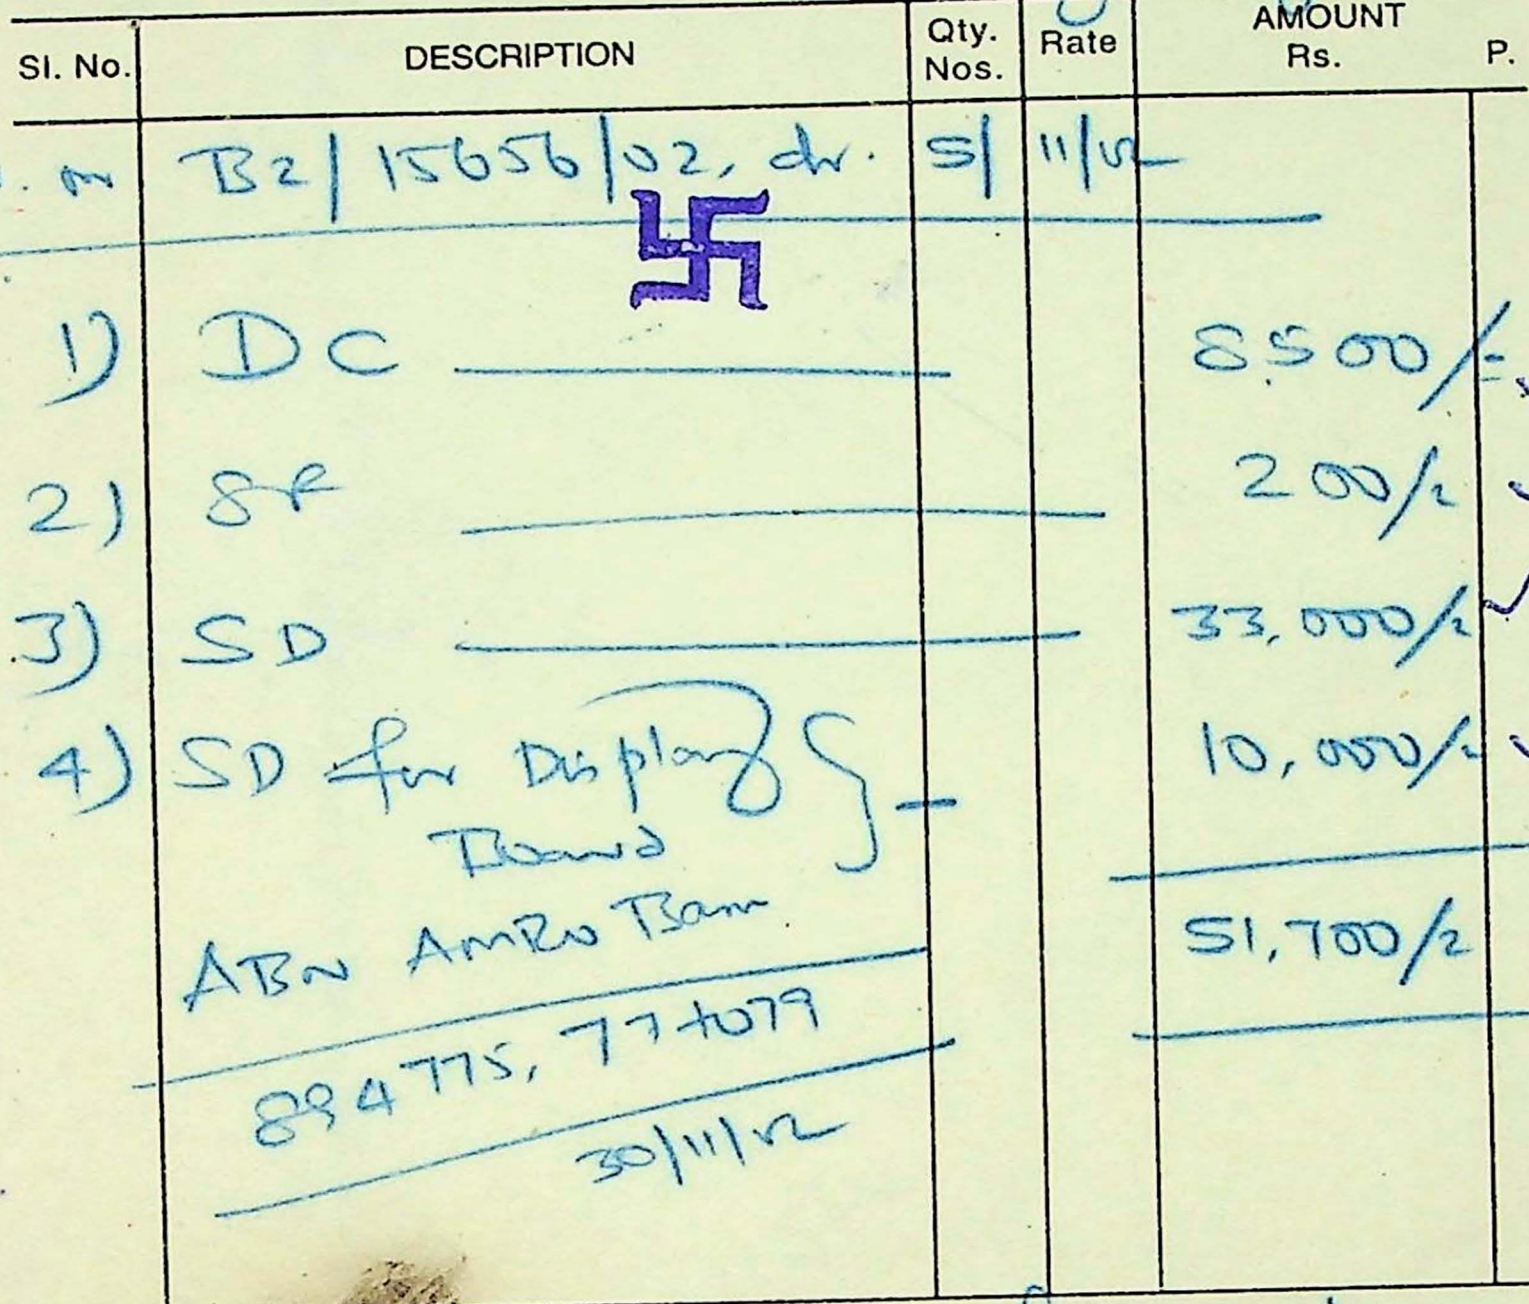 Sl. No. DESCRIPTION Qty. Nos. Rate AMOUNT Rs. P.
B2/15656/02, dt. 5/11/02
1) DC 8500/=
2) SF 200/=
3) SD 33,000/=
4) SD for Display 10,000/=
Board
ABN AMRO Bank 51,700/=
894775, 774079
30/11/02